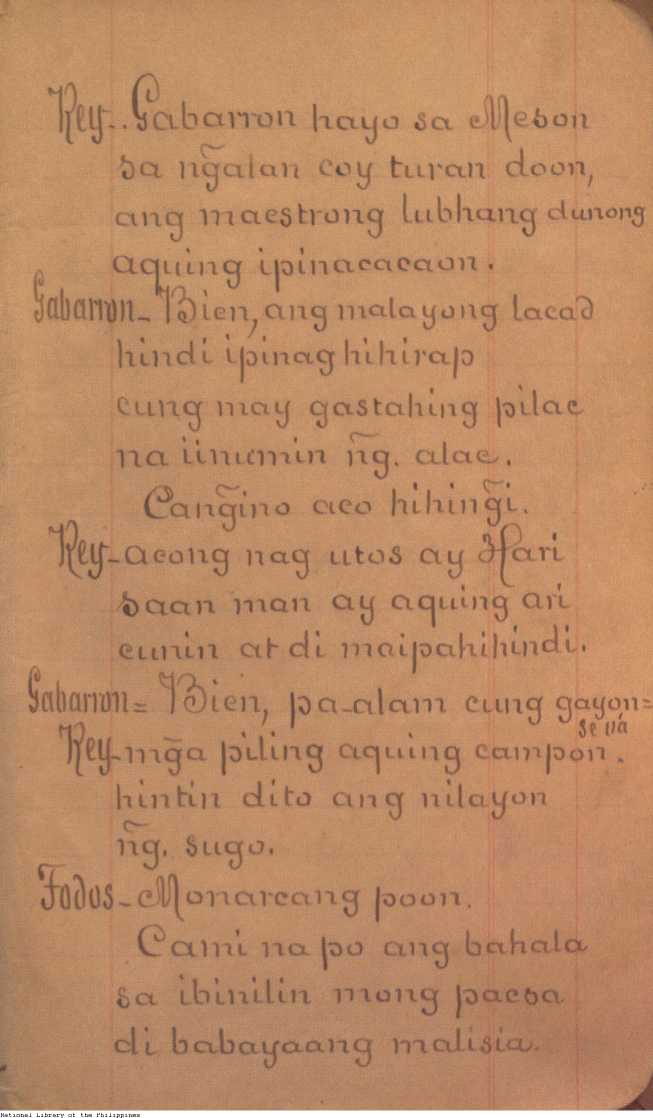 Rey-. Gabarron hayo sa Meson
sa ng̃alan coy turan doon,
ang maestrong lubhang dunong
aquing ipinacacaon.
Gabarron- Bien, ang malayong lacad
hindi ipinaghihirap
cung may gastahing pilac
na iinumin ñg. alac.
Cang̃ino aco hihing̃i.
Rey-acong nag utos ay Hari
saan man ay aquing ari
cunin at di maipahihindi.
Gabarron= Bien, pa-alam cung gayon=
se vá
Rey-mg̃a piling aquing campon.
hintin dito ang nilayon
ñg. sugo.
Todos- Monarcang poon.
Cami na po ang bahala
sa ibinilin mong pacsa
di babayaang malisia.
National Library of the Philippines